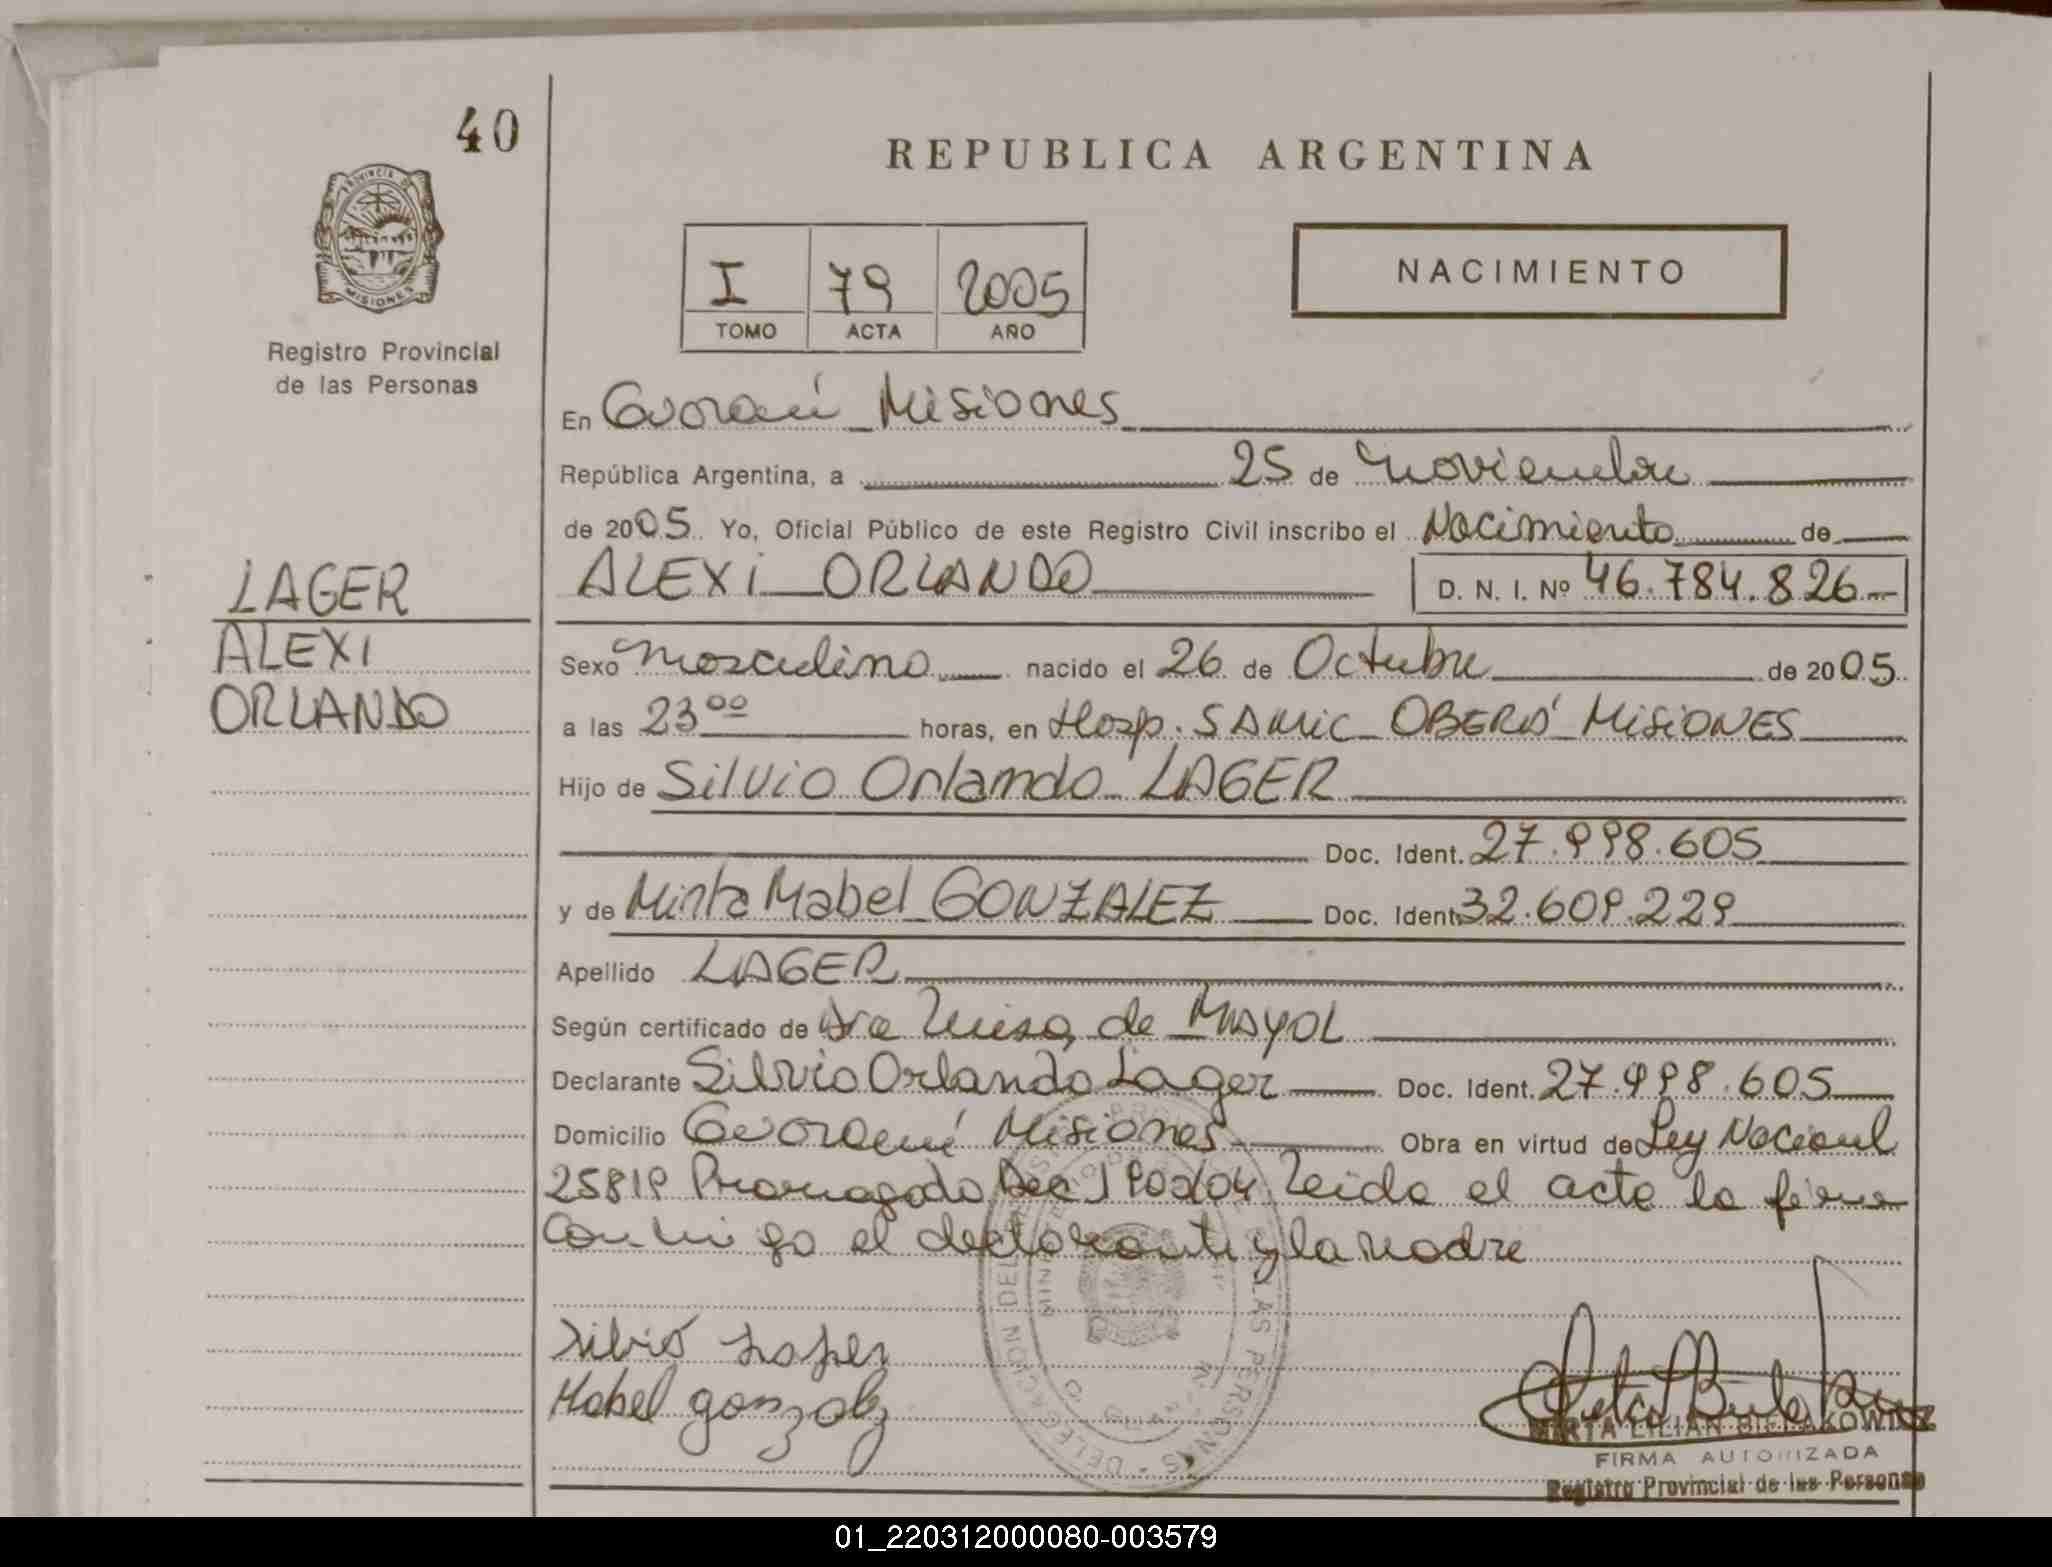 40
REPUBLICA ARGENTINA
PROVINCIA DE
MISIONES
Registro Provincial
de las Personas
I 79 2005
TOMO ACTA AÑO
NACIMIENTO
En Guaraní Misiones
República Argentina, a 25 de noviembre
de 2005. Yo, Oficial Público de este Registro Civil inscribo el Nacimiento de
LAGER
ALEXI
ORLANDO
ALEXI ORLANDO D. N. I. Nº 46.784.826
Sexo masculino nacido el 26 de Octubre de 2005.
a las 23⁰⁰ horas, en Hosp. SAMIC OBERÁ MISIONES
Hijo de Silvio Orlando LAGER
Doc. Ident. 27.998.605
y de Mirta Mabel GONZALEZ Doc. Ident. 32.609.229
Apellido LAGER
Según certificado de Dra Luisa de MAYOL
Declarante Silvio Orlando Lager Doc. Ident. 27.998.605
Domicilio Guaraní Misiones Obra en virtud de Ley Nacional
25819 Prorrogada Dec 1900/04 Leida el acta la firma
conmigo el declarante y la madre
Silvio
Mabel gonzalez
MIRTA LILIAN
FIRMA AUTORIZADA
Registro Provincial de las Personas
01_220312000080-003579